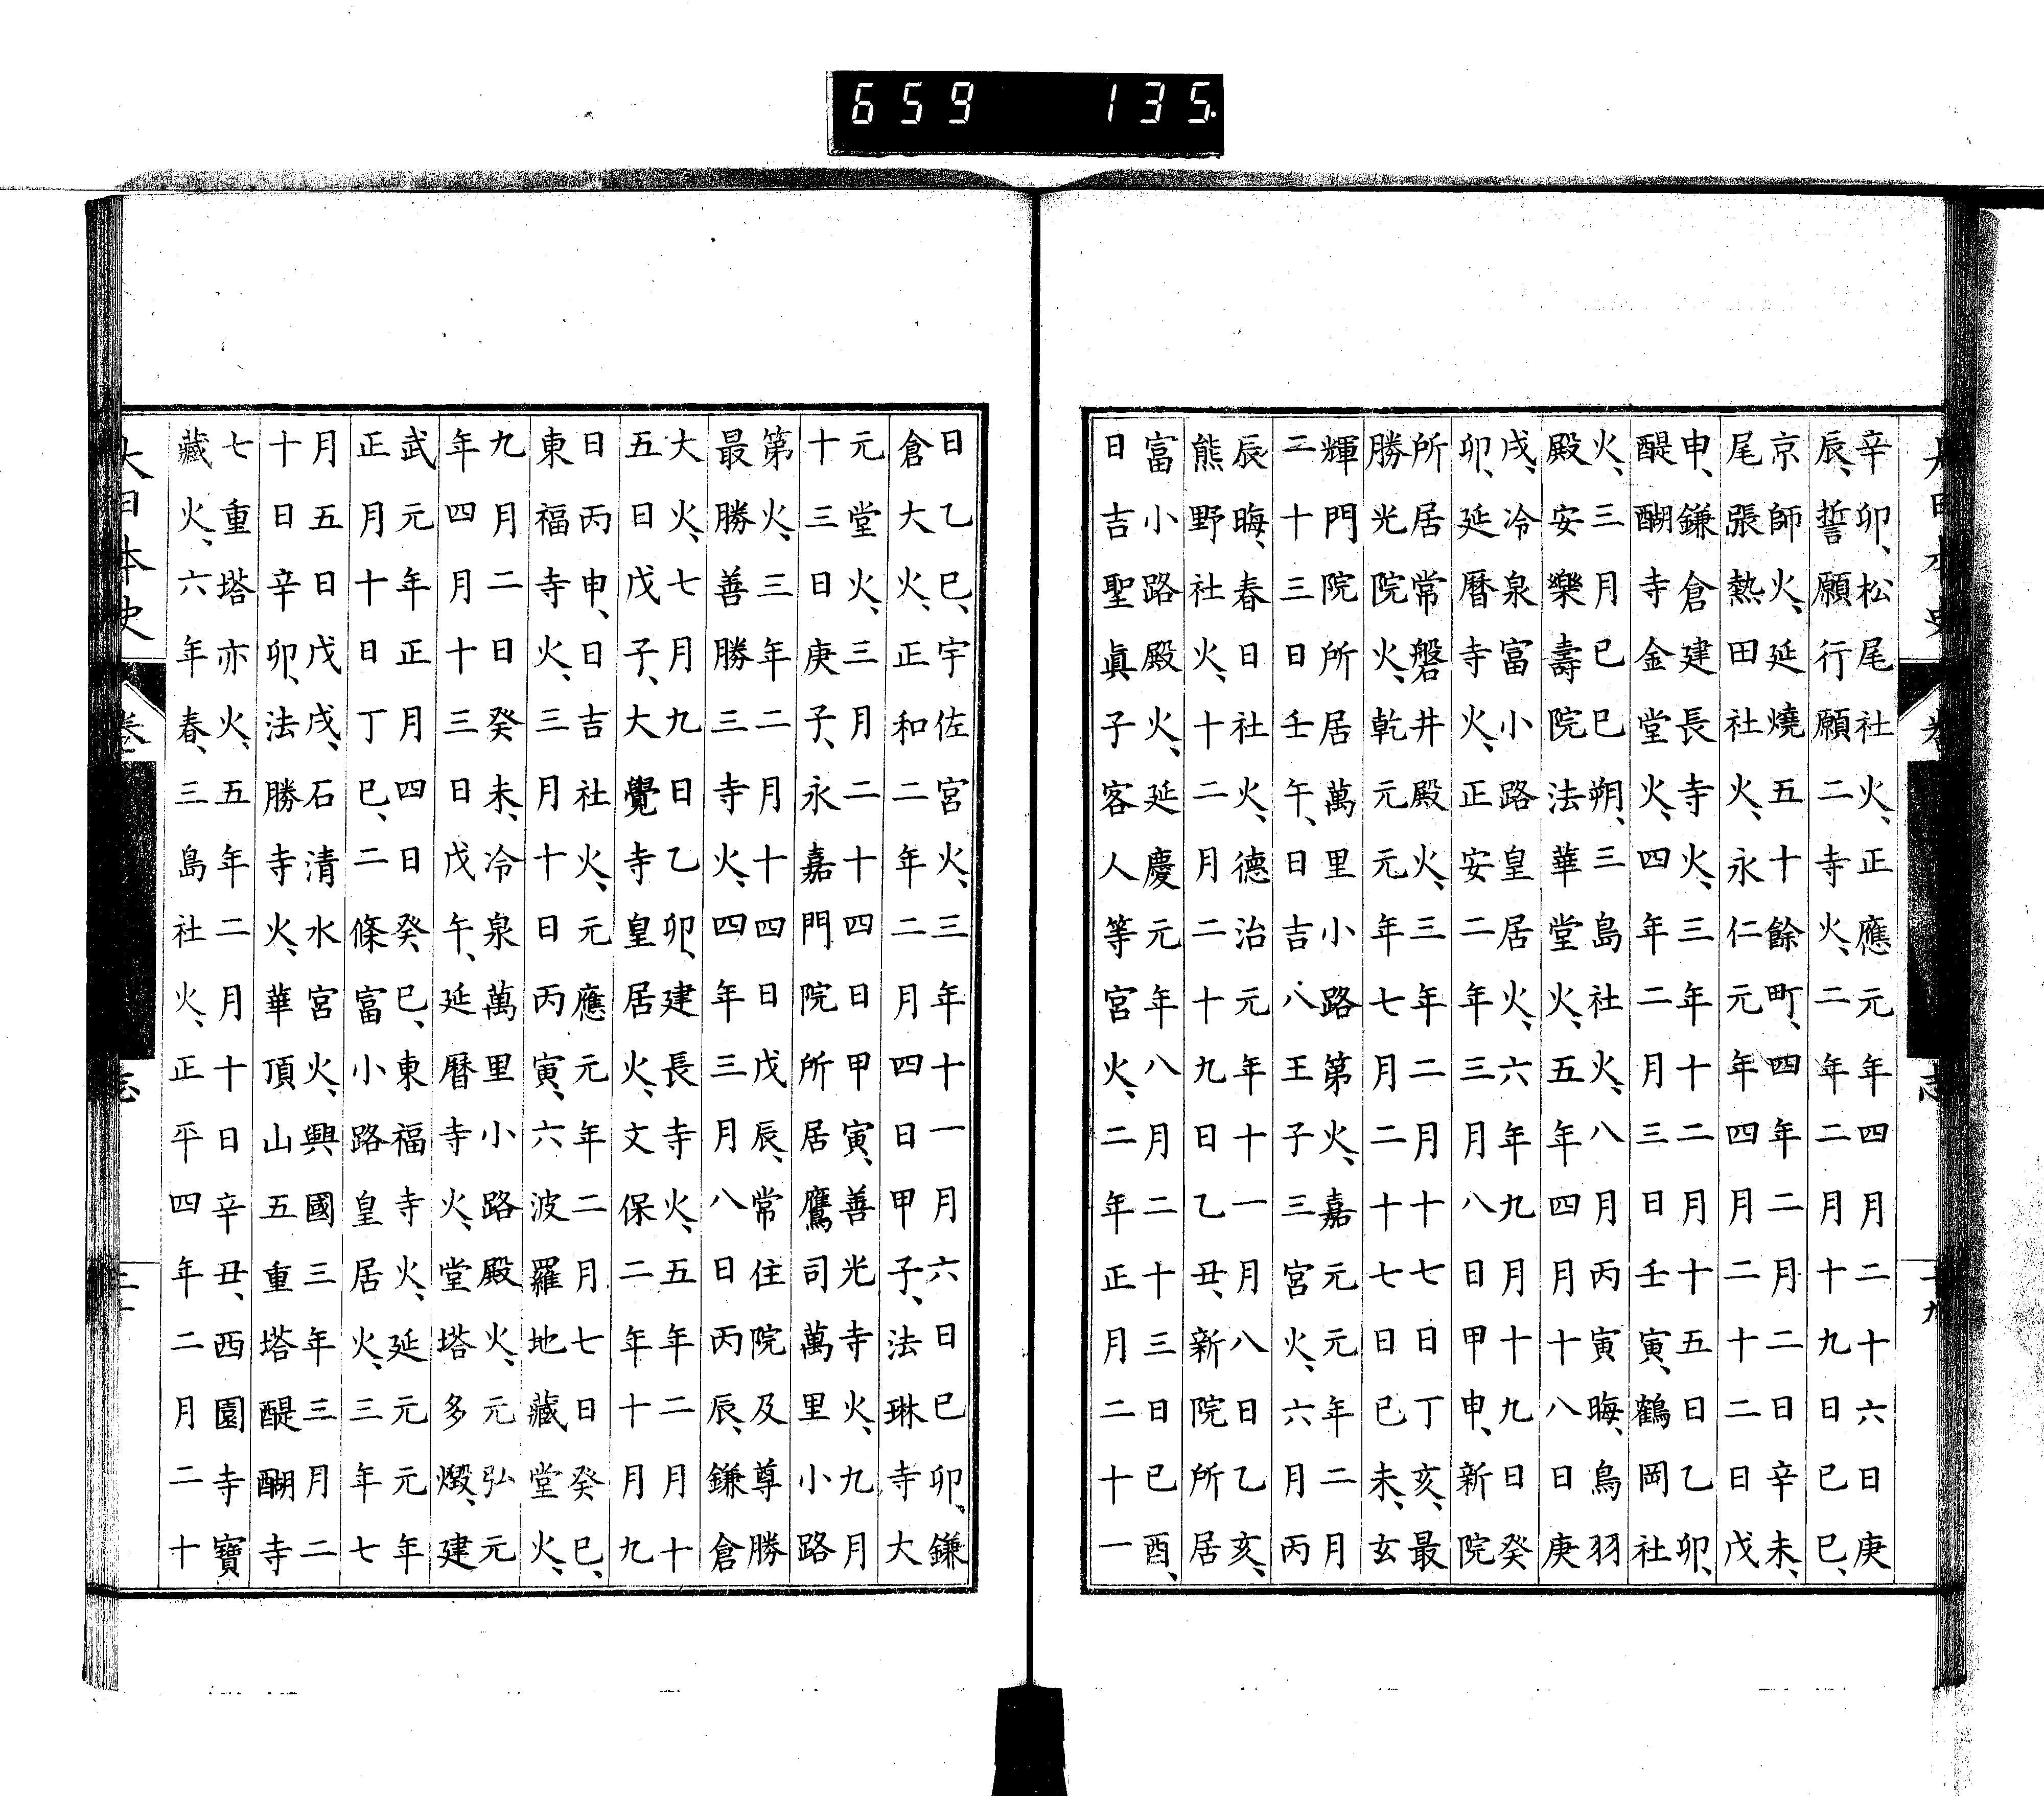 659 135
大日本史 卷 志 十九
辛卯、松尾社火、正應元年四月二十六日庚
辰、誓願行願二寺火、二年二月十九日己巳、
京師火、延燒五十餘町、四年二月二日辛未、
尾張熱田社火、永仁元年四月二十二日戊
申、鎌倉建長寺火、三年十二月十五日乙卯、
醍醐寺金堂火、四年二月三日壬寅、鶴岡社
火、三月己巳朔、三島社火、八月丙寅晦、鳥羽
殿安樂壽院法華堂火、五年四月十八日庚
戌、冷泉富小路皇居火、六年九月十九日癸
卯、延曆寺火、正安二年三月八日甲申、新院
所居常磐井殿火、三年二月十七日丁亥、最
勝光院火、乾元元年七月二十七日己未、玄
輝門院所居萬里小路第火、嘉元元年二月
二十三日壬午、日吉八王子三宮火、六月丙
辰晦、春日社火、德治元年十一月八日乙亥、
熊野社火、十二月二十九日乙丑、新院所居
富小路殿火、延慶元年八月二十三日己酉、
日吉聖眞子客人等宮火、二年正月二十一
日乙巳、宇佐宮火、三年十一月六日己卯、鎌
倉大火、正和二年二月四日甲子、法琳寺大
元堂火、三月二十四日甲寅、善光寺火、九月
十三日庚子、永嘉門院所居鷹司萬里小路
第火、三年二月十四日戊辰、常住院及尊勝
最勝善勝三寺火、四年三月八日丙辰、鎌倉
大火、七月九日乙卯、建長寺火、五年二月十
五日戊子、大覺寺皇居火、文保二年十月九
日丙申、日吉社火、元應元年二月七日癸巳、
東福寺火、三月十日丙寅、六波羅地藏堂火、
九月二日癸未、冷泉萬里小路殿火、元弘元
年四月十三日戊午、延曆寺火、堂塔多燬、建
武元年正月四日癸巳、東福寺火、延元元年
正月十日丁巳、二條富小路皇居火、三年七
月五日戊戌、石清水宮火、興國三年三月二
十日辛卯、法勝寺火、華頂山五重塔醍醐寺
七重塔亦火、五年二月十日辛丑、西園寺寶
藏火、六年春、三島社火、正平四年二月二十
大日本史 卷 志